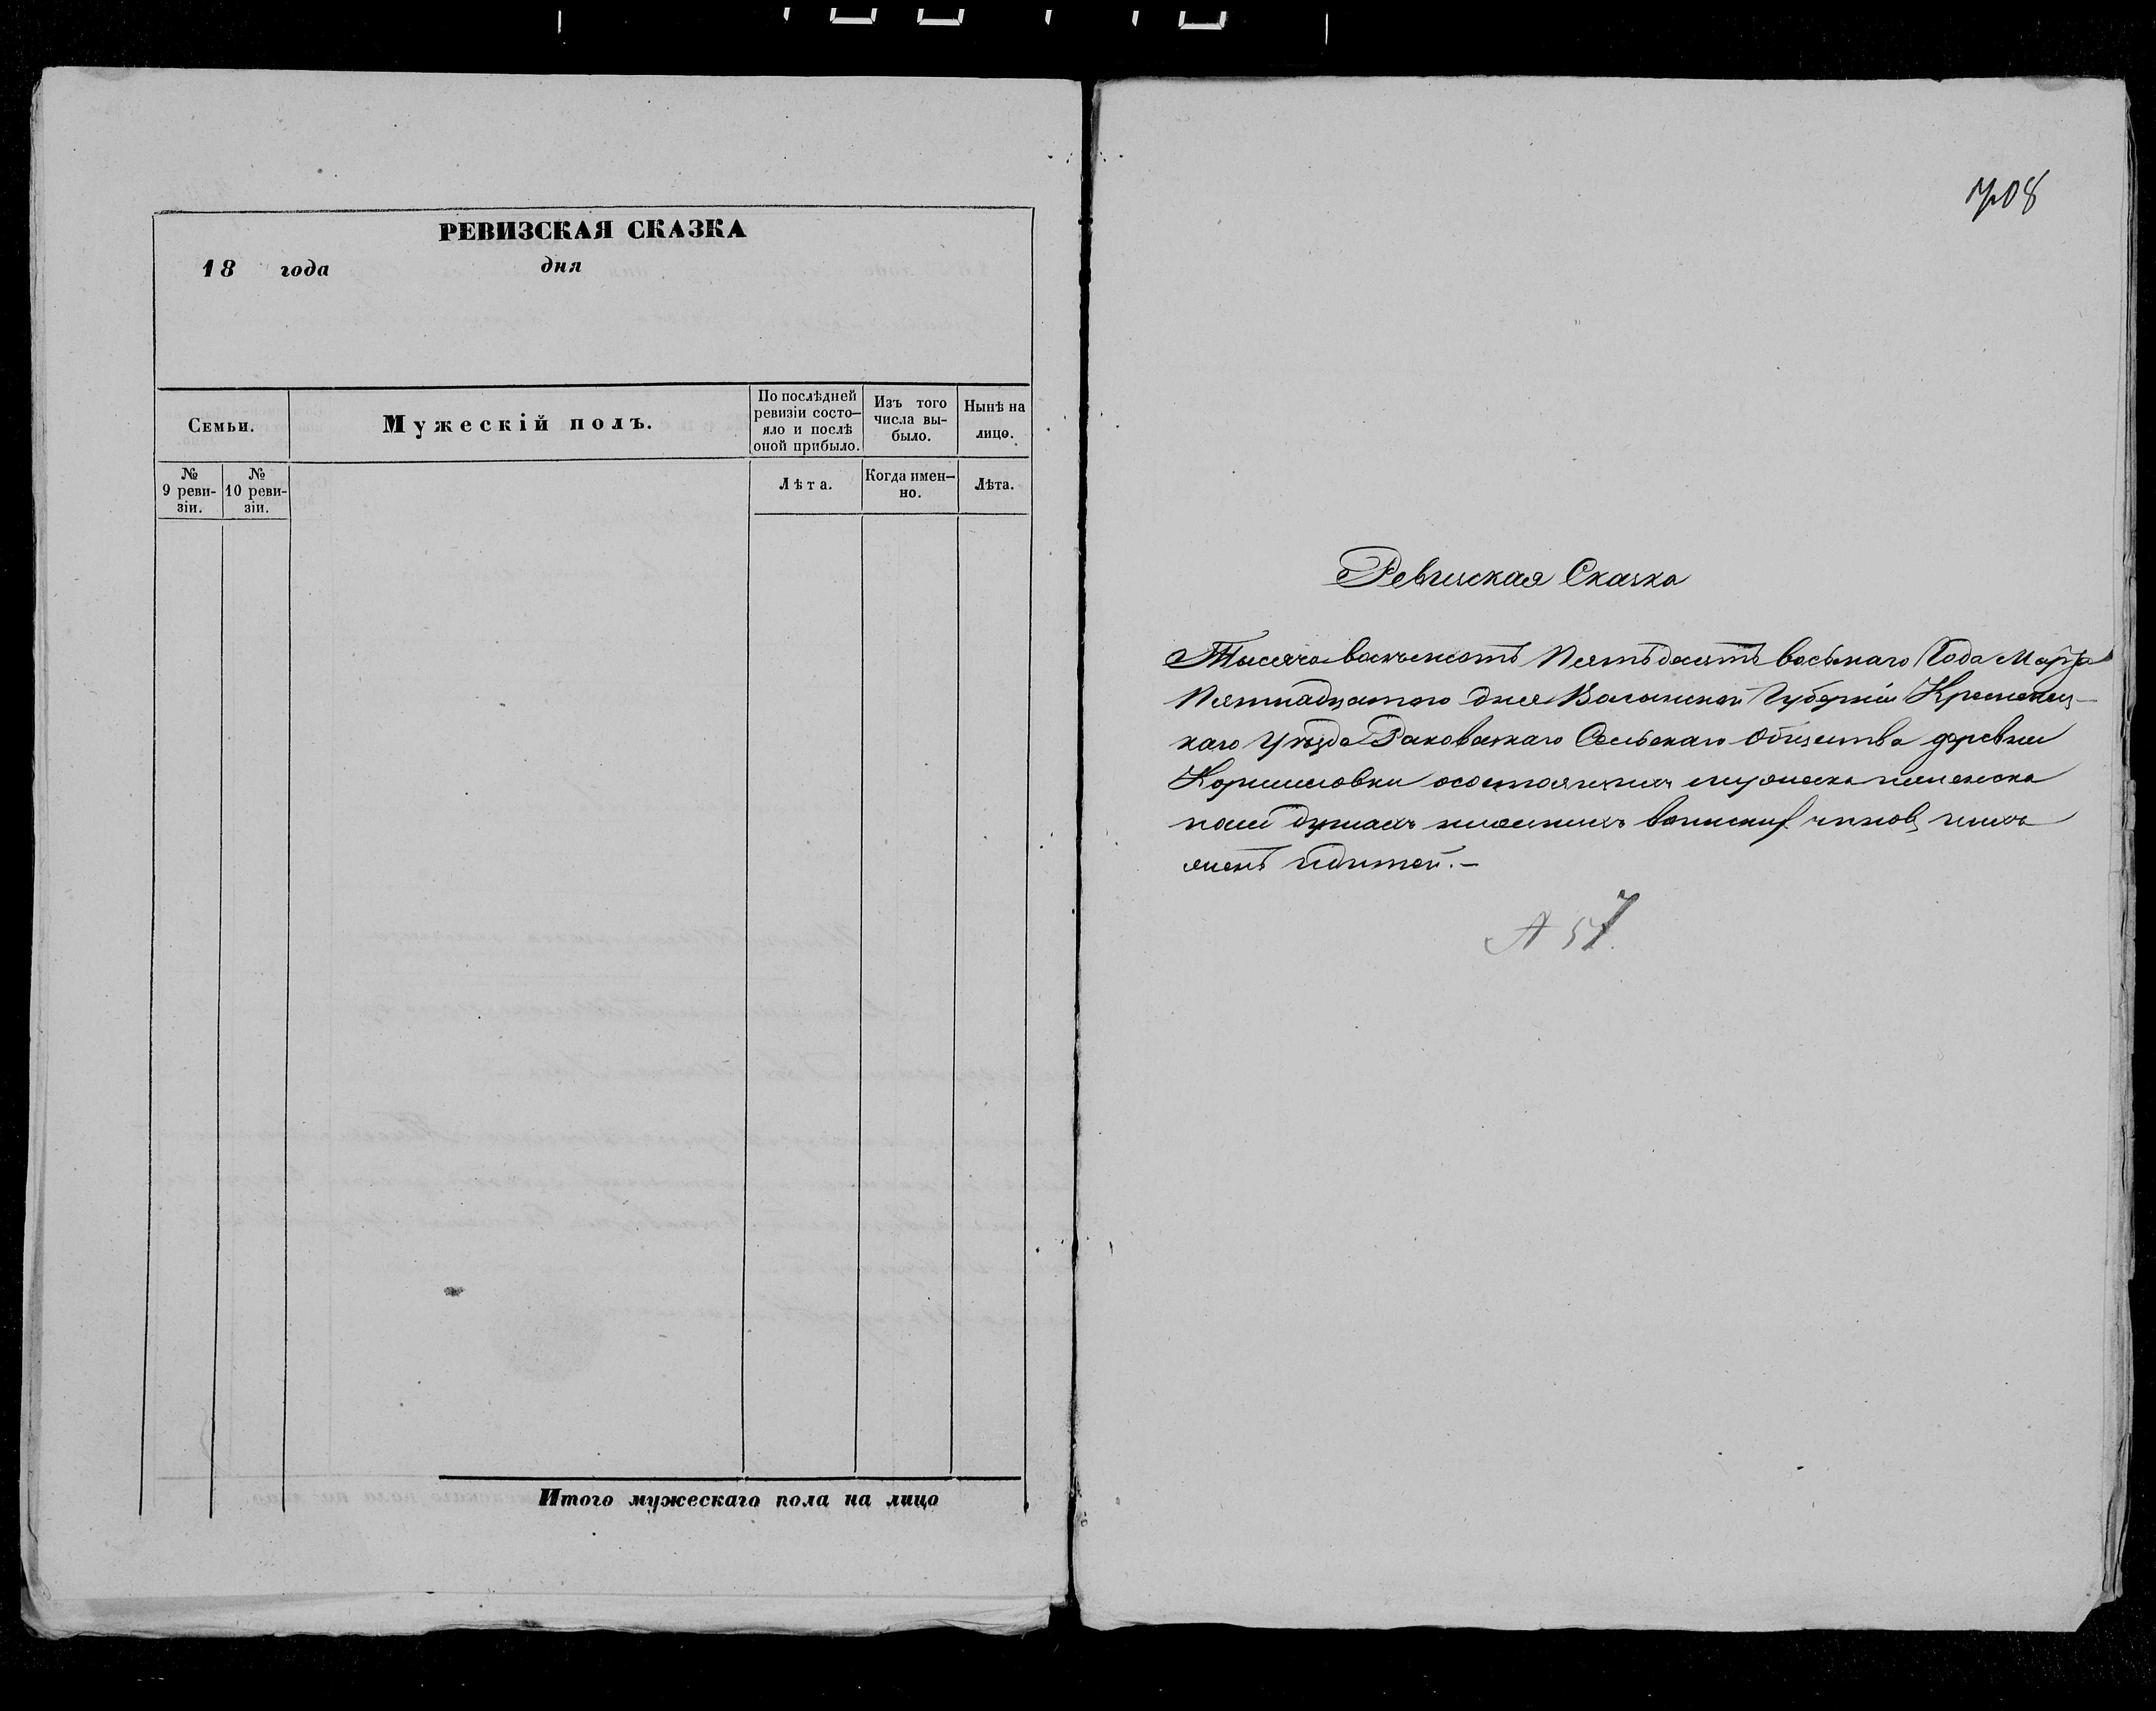 РЕВИЗСКАЯ СКАЗКА
18 года дня
Семьи.
Мужескій полъ.
По послѣдней
ревизіи состо-
яло и послѣ
оной прибыло.
Изъ того
числа вы-
было.
Нынѣ на
лицо.
№
9 реви-
зіи.
№
10 реви-
зіи.
Лѣта.
Когда имен-
но.
Лѣта.
Итого мужескаго пола на лицо
708
Ревизская Сказка
Тысяча восемьсотъ Пятьдесятъ восьмаго Года Марта
Пятнадцатого дня Волынской Губерніи Кременец-
каго Уѣзда Раковецкаго Сельскаго Общества деревни
осостоящихъ мужеска иженска
пола душахъ нижнихъ воинских чинов ихъ
женъ идитей.-
А 57.